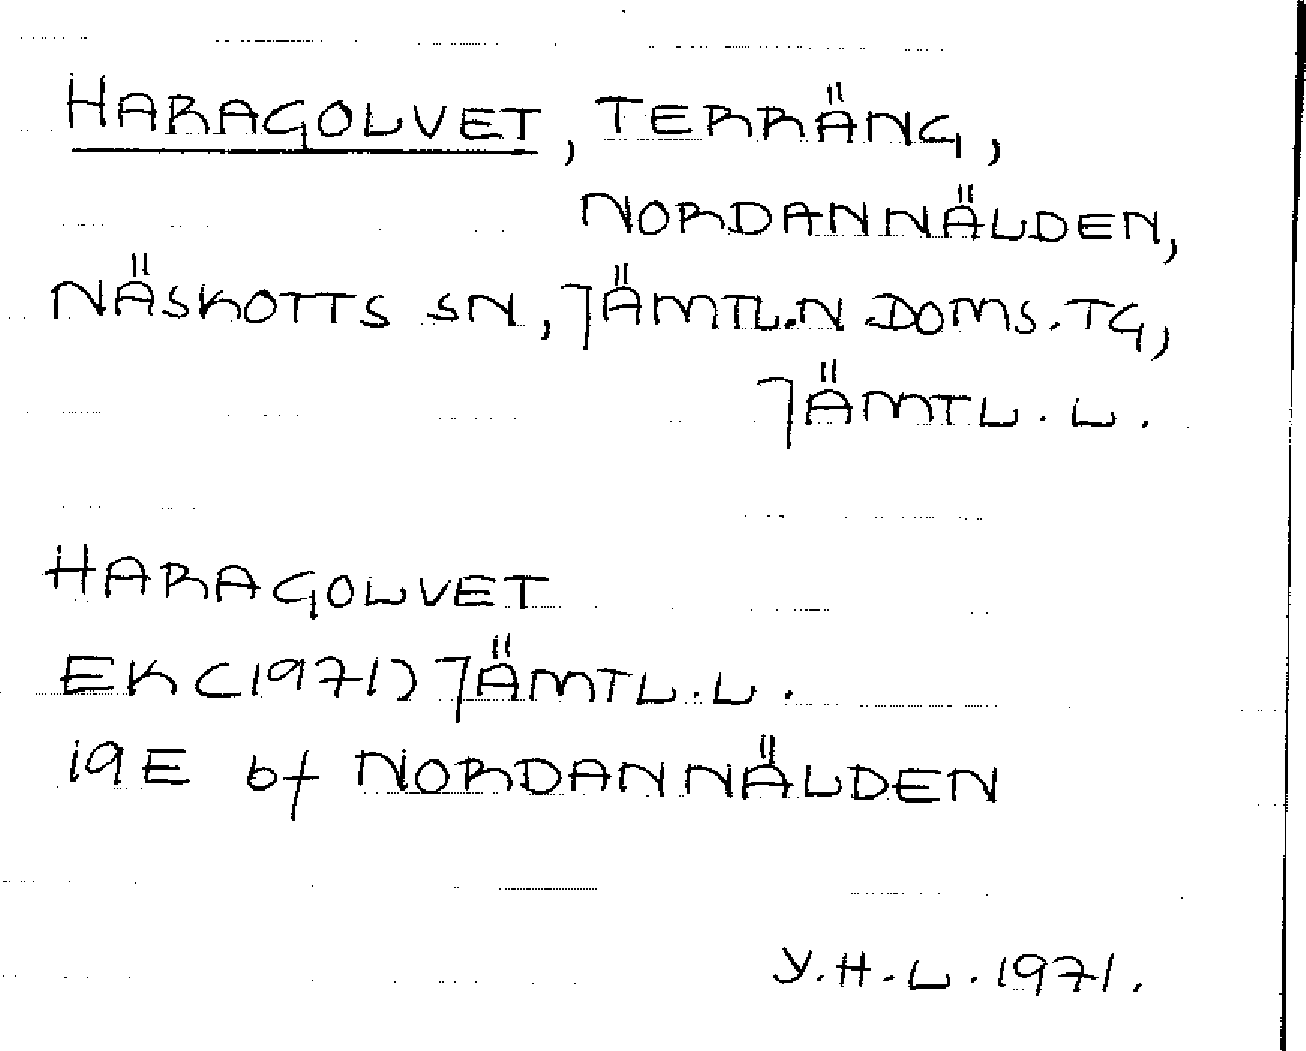 HARAGOLVET, TERRÄNG,
NORDANNÄLDEN,
NÄSKOTTS SN, JÄMTL.N.DOMS.TG,
JÄMTL. L.
HARAGOLVET
EK (1971) JÄMTL. L.
19E bf NORDANNÄLDEN
Y.H.L. 1971.